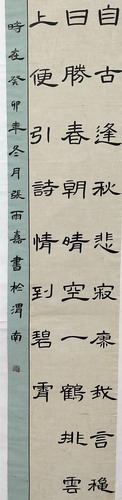 自古逢秋悲寂廖我言穐
日勝春朝晴空一鶴排雲
上便引詩情到碧霄
時在癸卯年冬月張雨嘉書於渭南